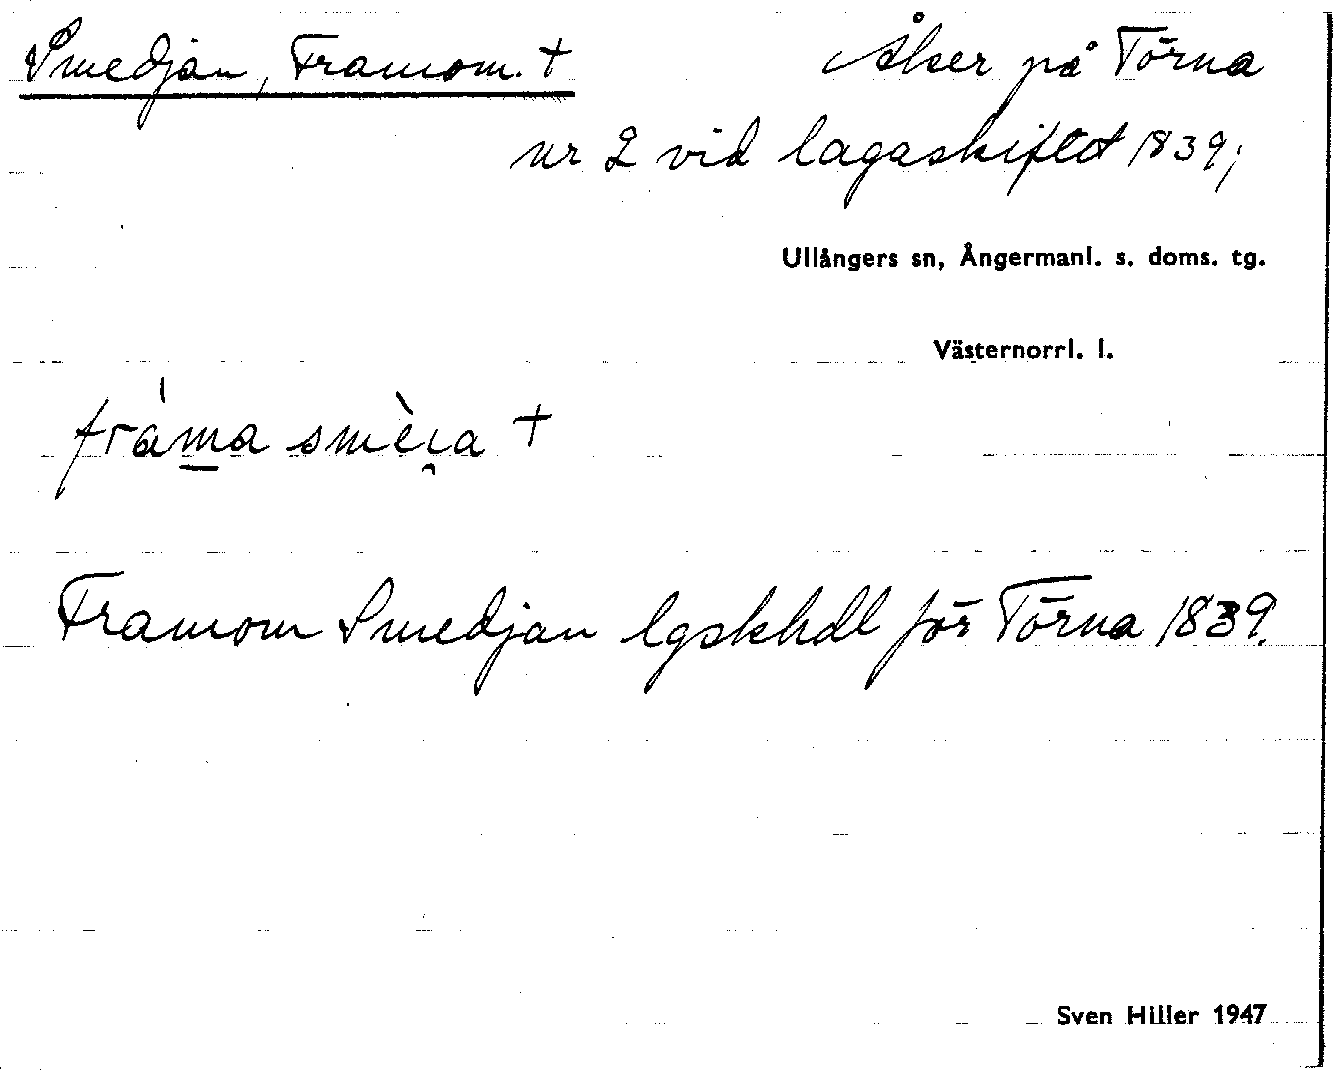 Smedjan, Framom. +
Åker på Törna
nr 2 vid lagaskiftet 1839;
Ullångers sn, Ångermanl. s. doms. tg.
Västernorrl. l.
fráma smèɩ̯a +
Framom Smedjan lgskhdl för Törna 1839.
Sven Hiller 1947